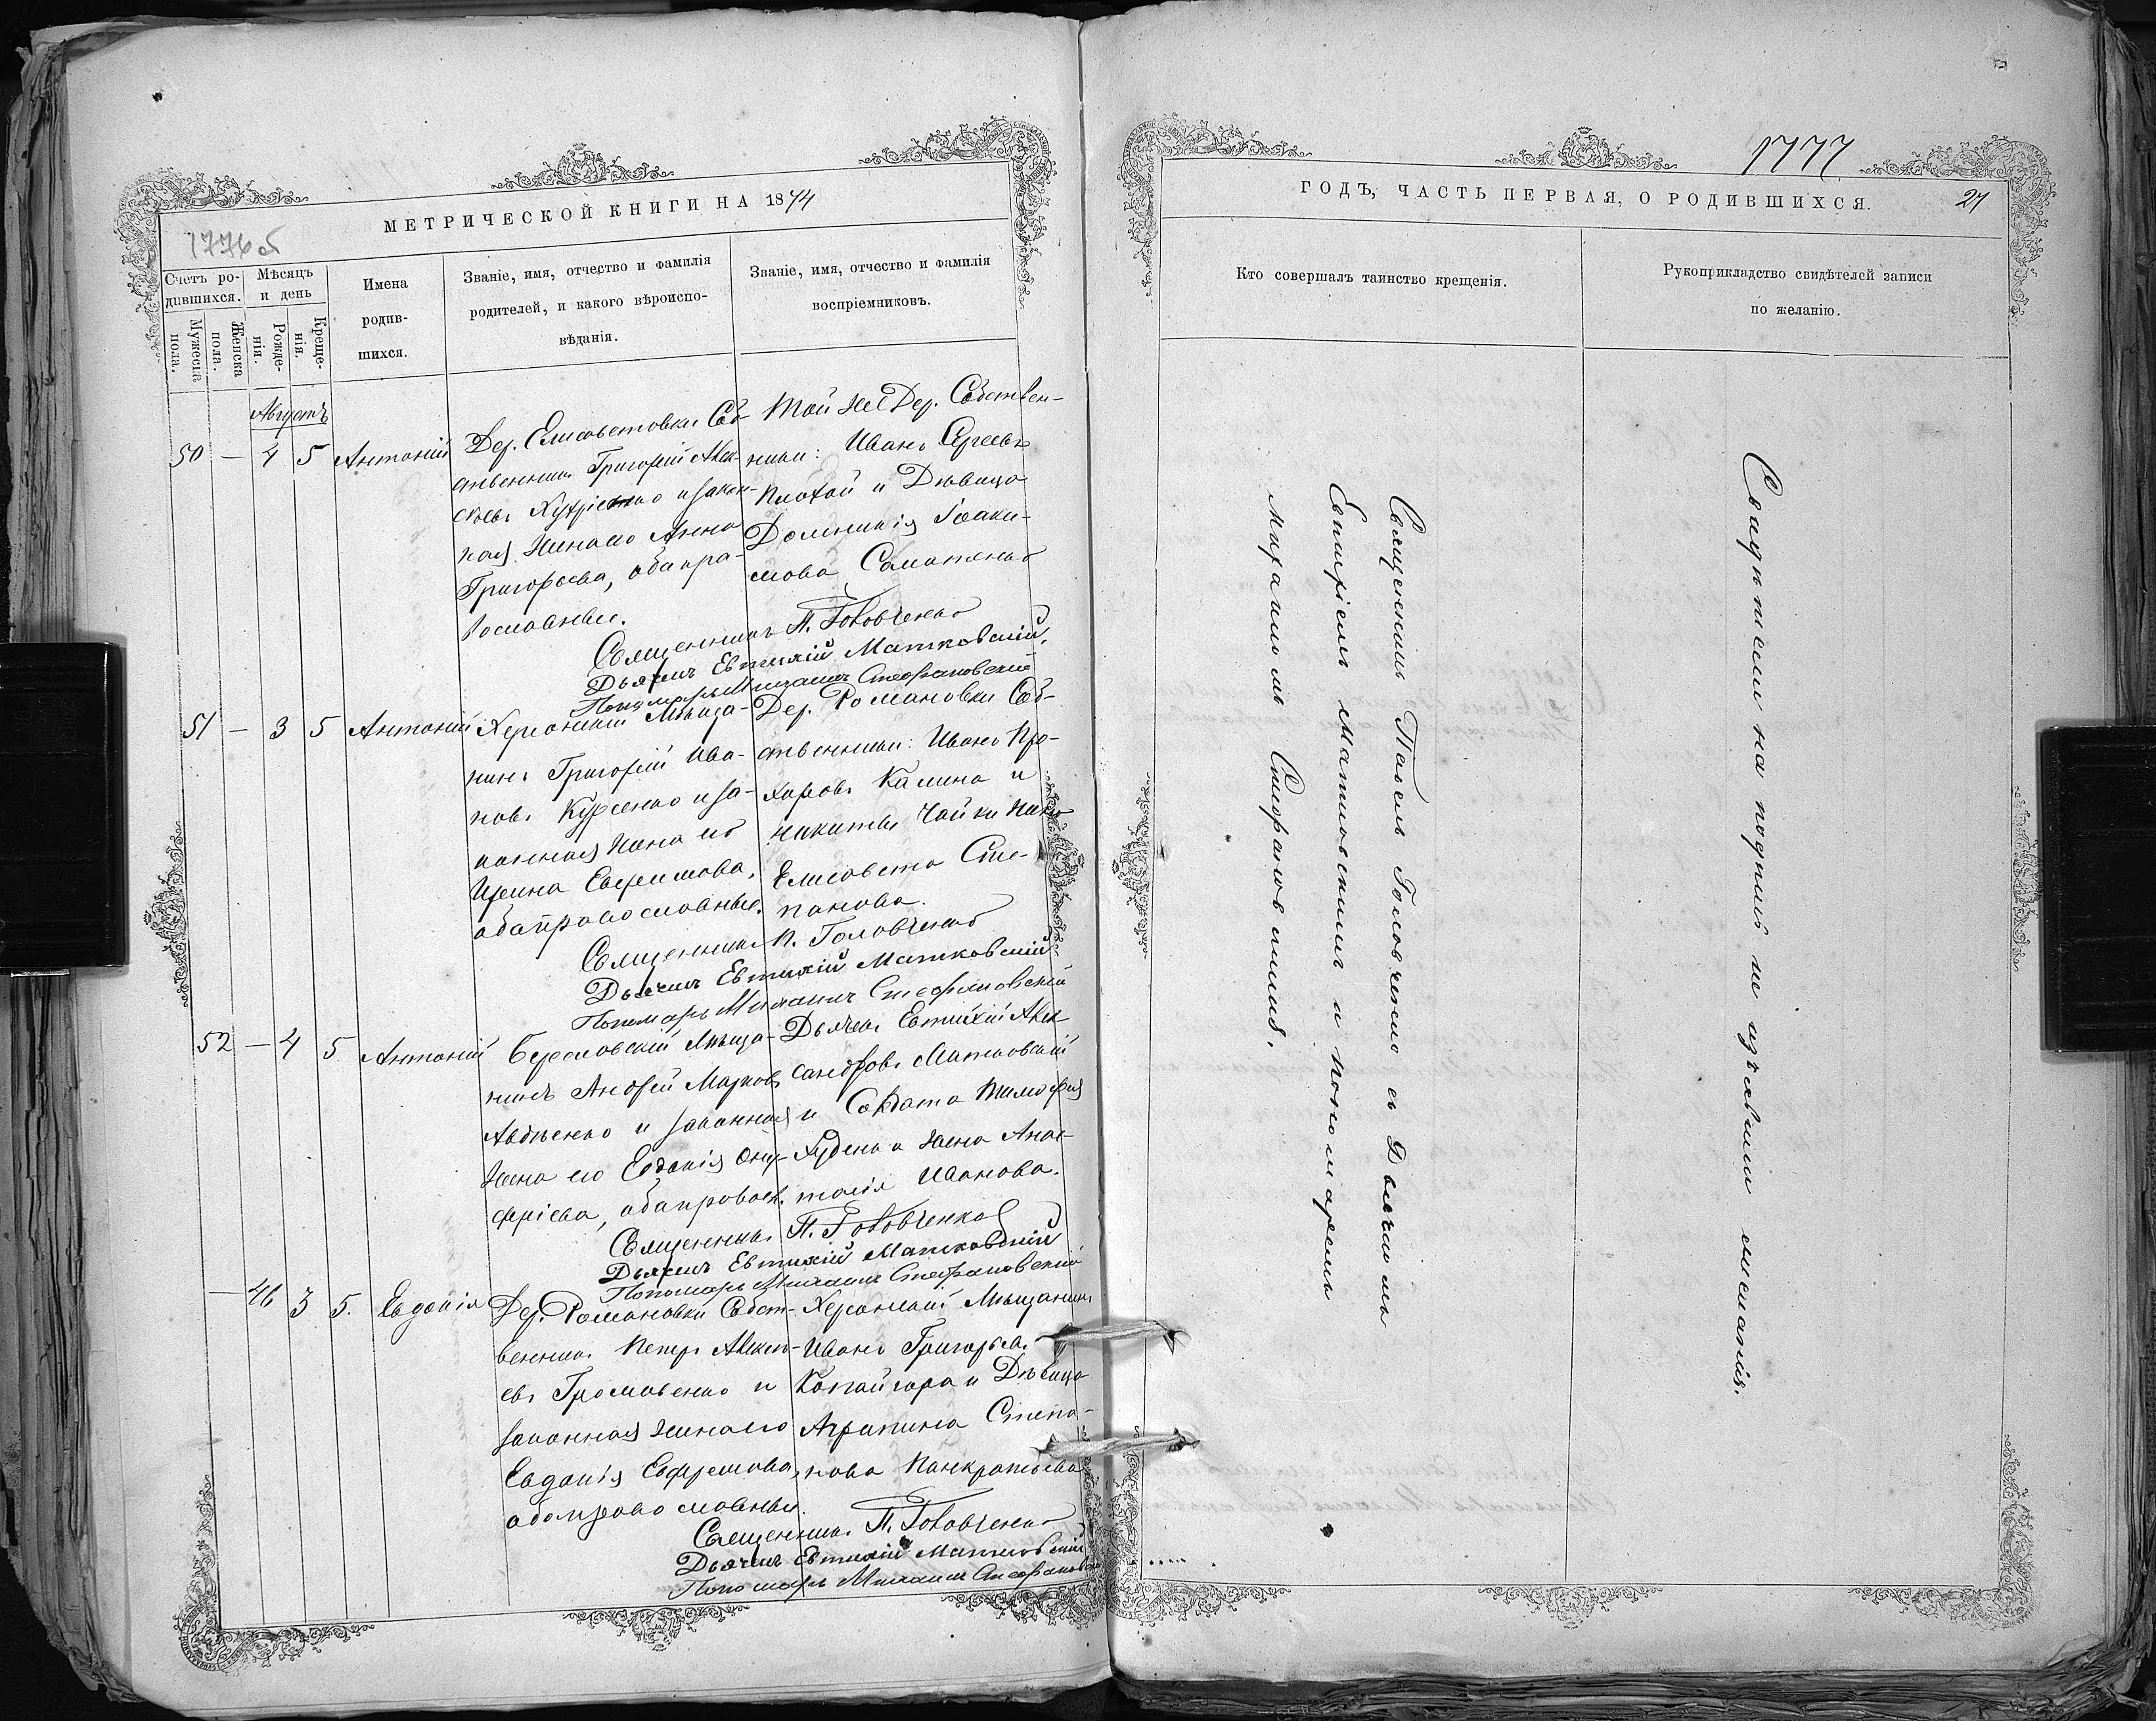 МЕТРИЧЕСКОЙ КНИГИ НА 1874
1776об
Счетъ ро-
дившихся.
Мѣсяцъ
и день
Мужеска
пола.
Женска
пола.
Рожде-
нія.
Креще-
нія.
Имена
родив-
шихся.
Званіе, имя, отчество и фамилія
родителей, и какого вѣроиспо-
вѣданія.
Званіе, имя, отчество и фамилія
воспріемниковъ.
Августъ
50 — 4 5 Антоній
Дер. Елисаветовки Соб-
ственникъ Григорій Алек-
сѣевъ и закон-
ная жена его Анна
Григорьева, оба пра-
вославные.
Той же Дер. Собствен-
ники: Иванъ Сергѣевъ
Плохой и Дѣвица
Домникія Іоаки-
мова
Священникъ П. Головченко
Дьячекъ Евтихій Матковскій
Пономарь Михаилъ Стефановскій
51 — 3 5 Антоній
Херсонскій Мѣща-
нинъ Григорій Ива-
новъ Курсенко и за-
конная жена его
Ирина Ефремова,
оба православные.
Дер. Романовки Соб-
ственники: Иванъ Про-
хоровъ Калина и
Никиты Чайки жена
Елисавета Сте-
панова.
Священникъ П. Головченко
Дьячекъ Евтихій Матковскій
Пономарь Михаилъ Стефановскій
52 — 4 5 Антоній
Береславскій Мѣща-
нинъ Андрей Марковъ
Авдѣенко и законная
жена его Евдокія Ону-
фріева, оба правосл.
Дьячекъ Евтихій Алек-
сандровъ Матковскій
и Солдата Тимофея
жена Анас-
тасія Иванова.
Священникъ П. Головченко
Дьячекъ Евтихій Матковскій
Пономарь Михаилъ Стефановскій
— 46 3 5. Евдокія
Дер. Романовки Собст-
венникъ Петръ Алексѣ-
евъ Громовенко и
законная жена его
Евдокія Ефремова,
оба православные.
Херсонскій Мѣщанинъ
Иванъ Григорьевъ
Копайгора и Дѣвица
Агрипина Степа-
нова Панкратьева
Священникъ П. Головченко
Дьячекъ Евтихій Матковскій
Пономарь Михаилъ Стефановскій
1777
ГОДЪ, ЧАСТЬ ПЕРВАЯ, О РОДИВШИХСЯ.
27
Кто совершалъ таинство крещенія.
Рукоприкладство свидѣтелей записи
по желанію.
Священникъ Павелъ Головченко съ Дьячкомъ
Евтихіемъ Матковскимъ и пономаремъ
Михаиломъ Стефановскимъ.
Свидѣтели на подпись не изъявили желанія.